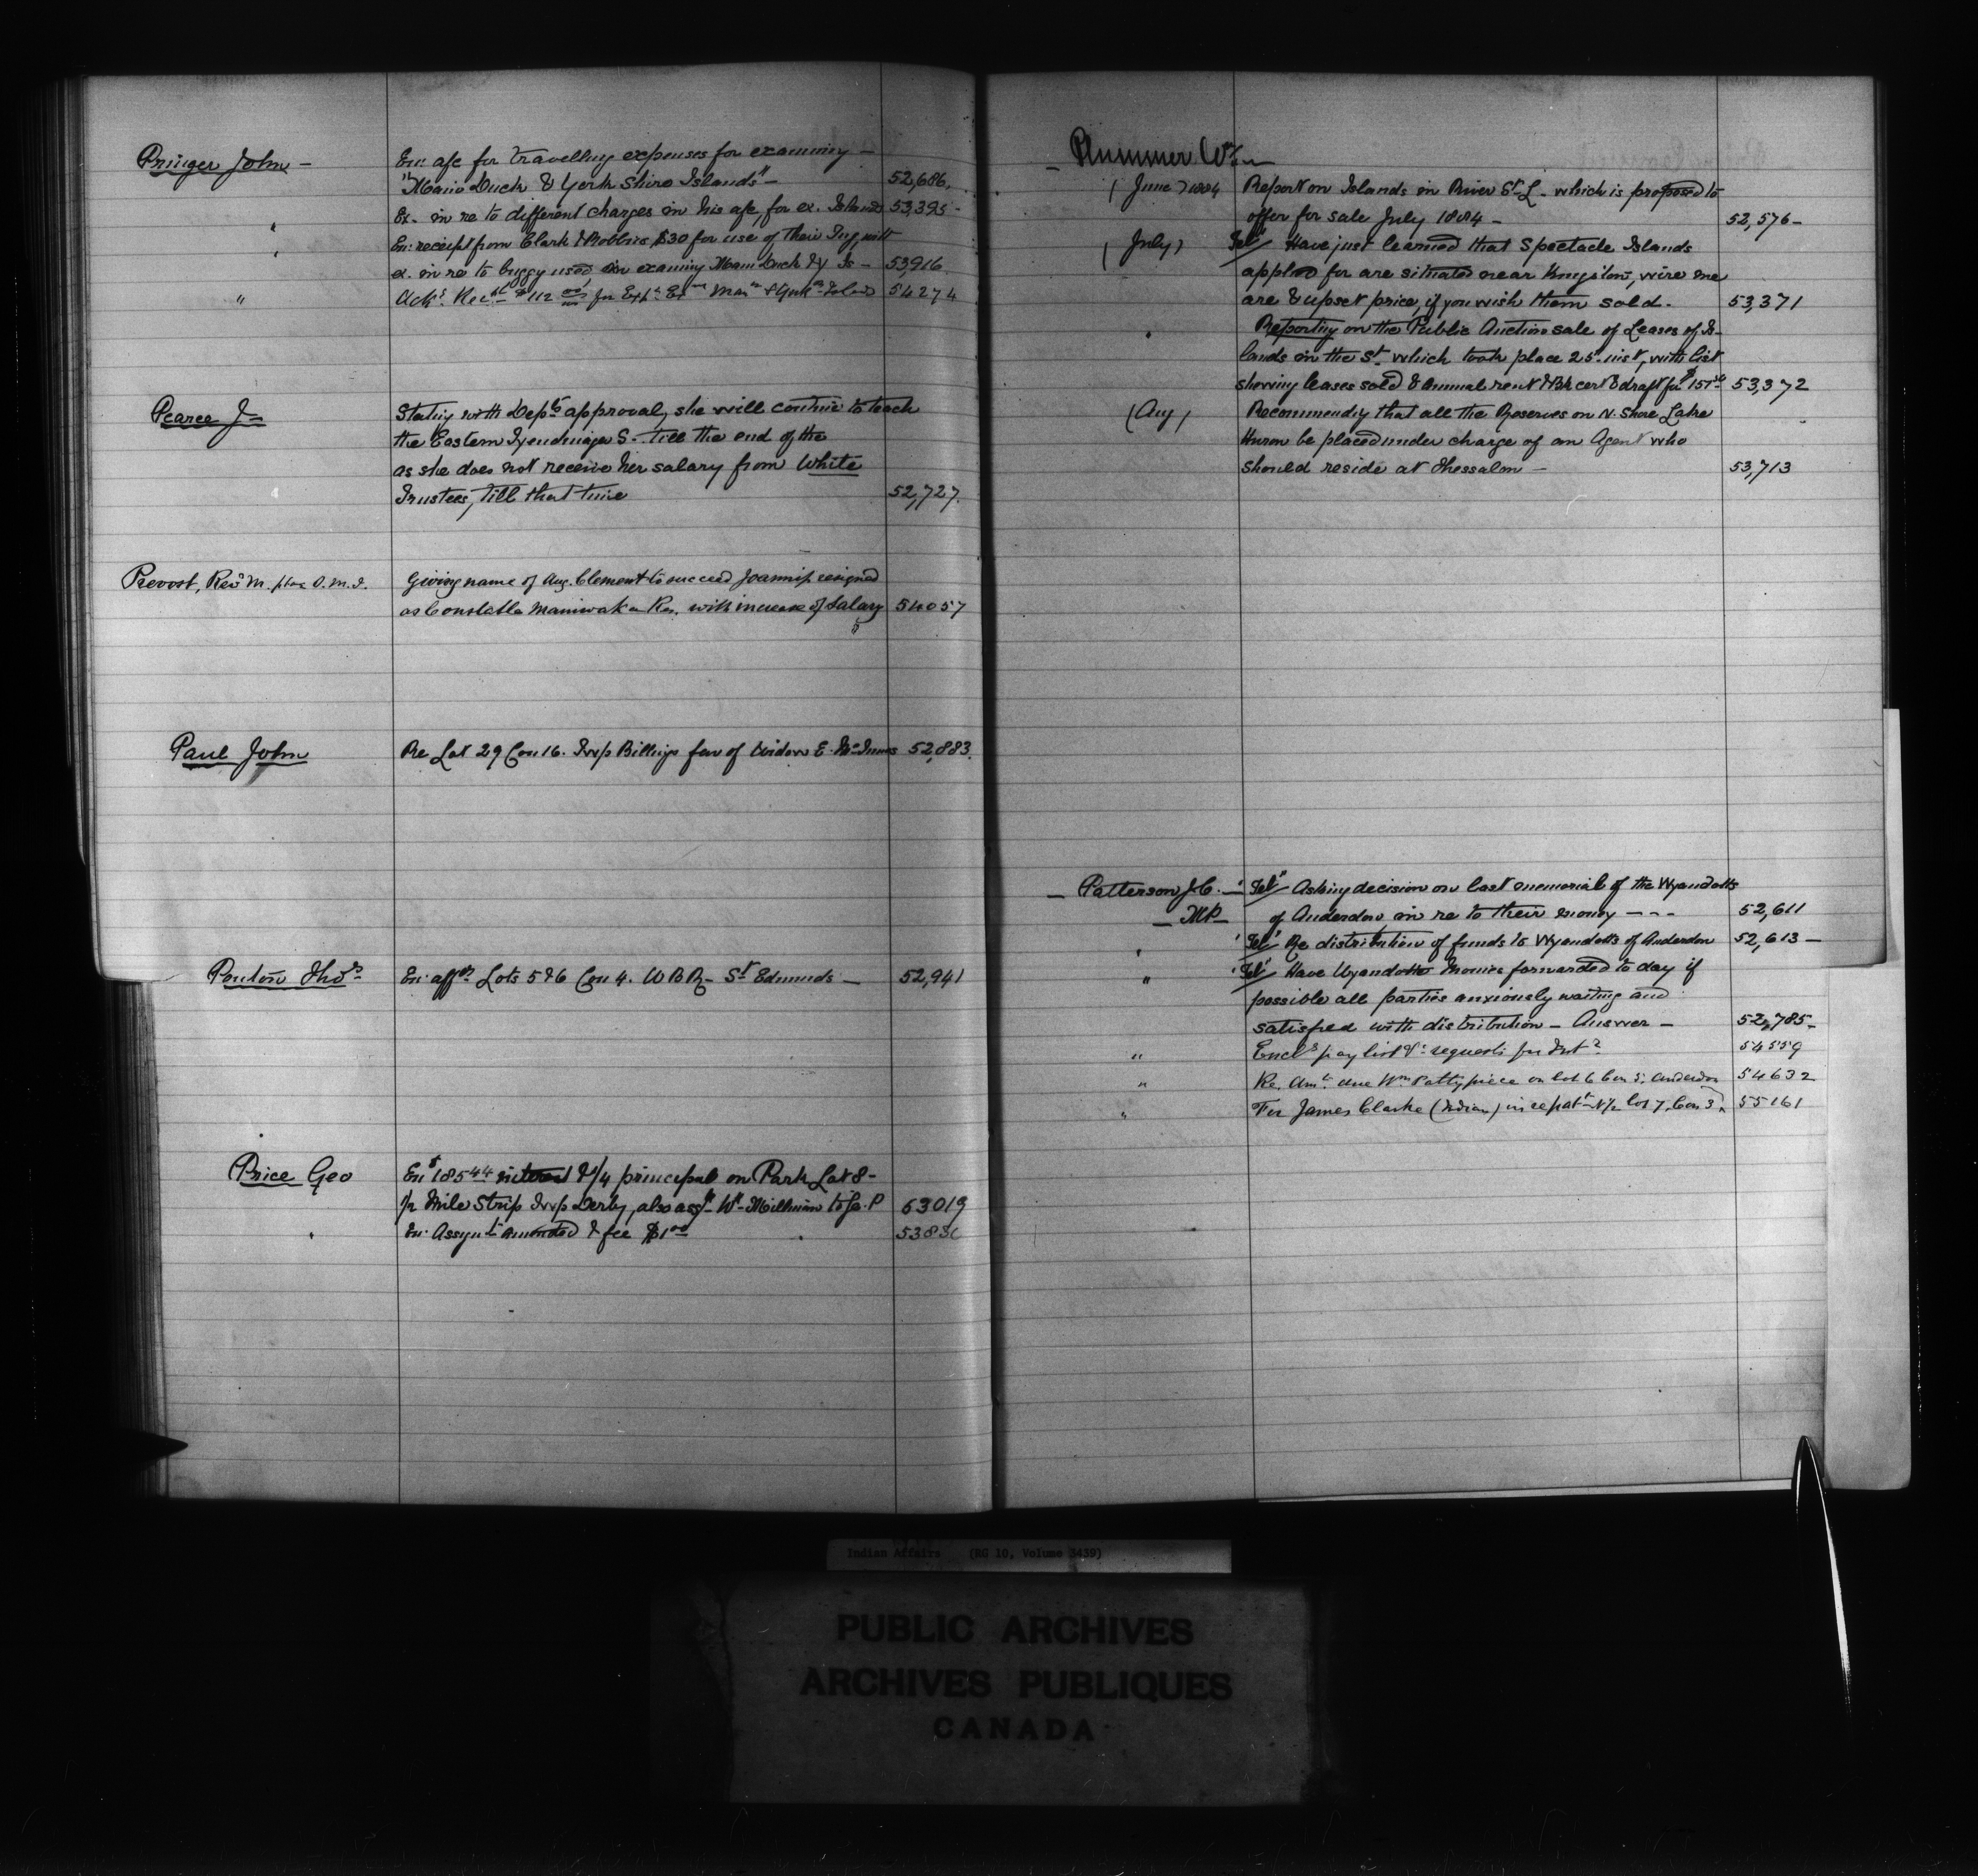 Pringer John –
En: a/c for travelling expenses for examining –
"Main Duck & York Shire Islands" – 52,686.
" Ex. in re to different charges in his a/c, for ex. Islands 53,395 –
" En: receipt from Clark & Robbins $30 for use of their Tug with
ex. in re to buggy used in examing Main Duck & Y Is – 53,916
" Ack.s Rec.pt $112 00/100 for Exp.s Ex.ing Main & York.re Islands 54274
Pearce J –
Stating with Dep.ts approval, she will continue to teach
the Eastern Tyendinaga S. till the end of the
as she does not receive her salary from White
Trustees, till that time 52,727.
Prevost, Rev.d M. ptre O.M.I.
Giving name of Aug. Clement to succeed Joannis, resigned
as Constable Maniwaka Res. with increase of salary 54057
Paul John
Re Lot 29 Con 16. Twp Billings fav of Widow E. McInnes 52,883.
Ponton Thos
En: aff.n Lots 5 & 6 Con 4. W B R – St Edmunds – 52,941
Price Geo
En $185 44 interest & 1/4 principal on Park Lot 8 –
1/2 Mile Strip Twp Derby, also ass.t W.m Millman to G. P 53019
" En: Assgn.t amended & fee $1 00
Plummer Wm
(June) 1884 Report on Islands in River St L. which is proposed to
offer for sale July 1884 – 52,576 –
(July) Tel" Have just learned that Spectacle Islands
applied for are situated near Kingston, wire me
are & upset price, if you wish them sold. 53,371
" Reporting on the Public Auction sale of Leases of Is-
lands in the St. which took place 25th inst, with list
showing leases sold & annual rent & Bk cert & draft for $151 53,372
(Aug) Recommending that all the Reserves on N. Shore Lake
Huron be placed under charge of an Agent who
should reside at Thessalon – 53,713
– Patterson J.C. – "Tel" Asking decision on last memorial of the Wyandotts
– MP – of Anderdon in re to their money – – – 52,611
" "Tel" Re distribution of funds to Wyandotts of Anderdon 52,613 –
" "Tel" Have Wyandotts Monies forwarded to day if
possible all parties anxiously waiting and
satisfied with distribution – Answer – 52,785 –
" Encl.s pay list & requests for Inst.s 54559
" Re. am.t due Wm Pattypiece on lot 6 Con 5. Anderdon 54632
" For James Clarke (Indian) in re pat.t N 1/2 lot 7, Con 3, 55161
Indian Affairs (RG 10, Volume 3439)
PUBLIC ARCHIVES
ARCHIVES PUBLIQUES
CANADA